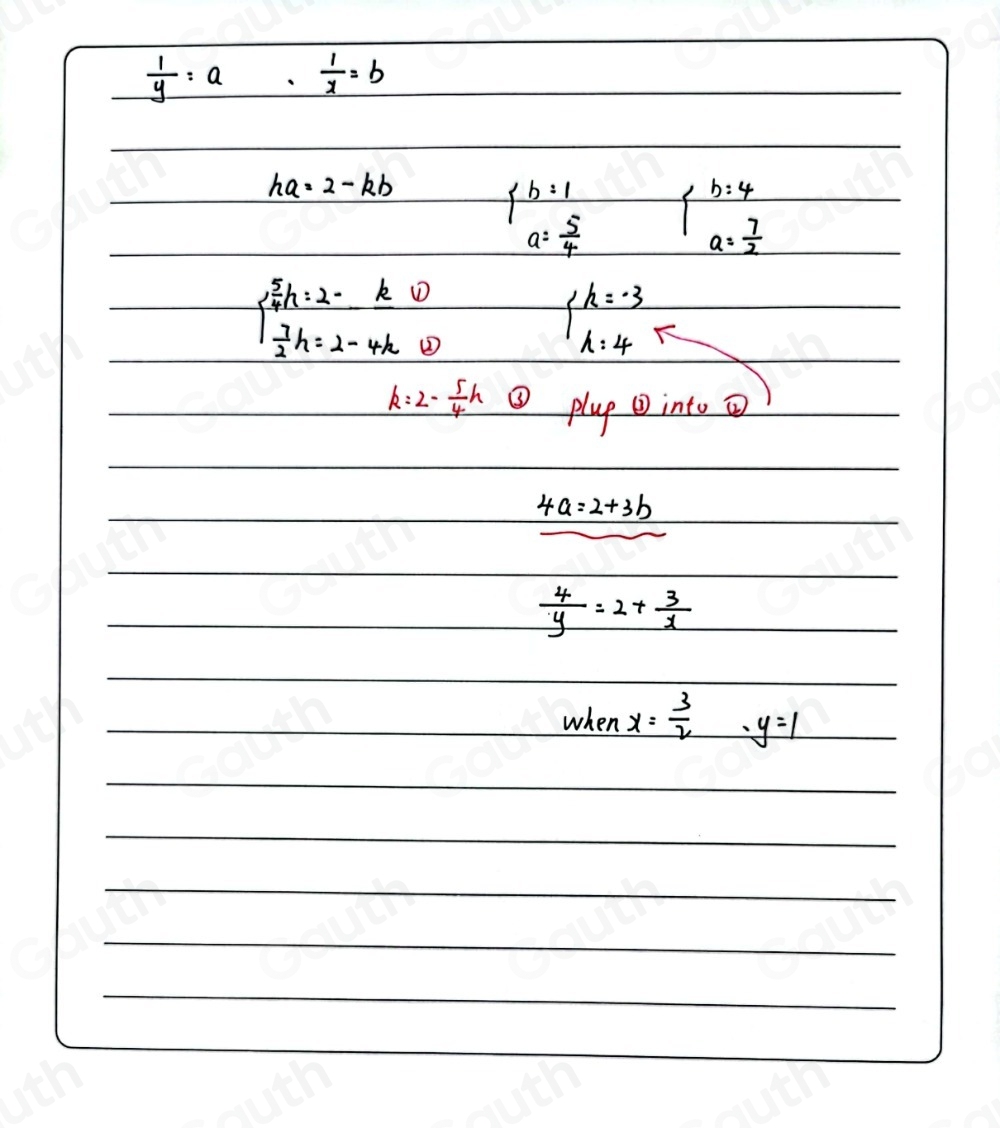 1/y = a 、 1/x = b
ha = 2 - kb { b = 1 { b = 4
a = 5/4 a = 7/2
{ 5/4 h = 2 - k ① { k = -3
7/2 h = 2 - 4k ② h = 4
k = 2 - 5/4 h ③ plug ③ into ②
4a = 2 + 3b
4/y = 2 + 3/x
when x = 3/2 、 y = 1